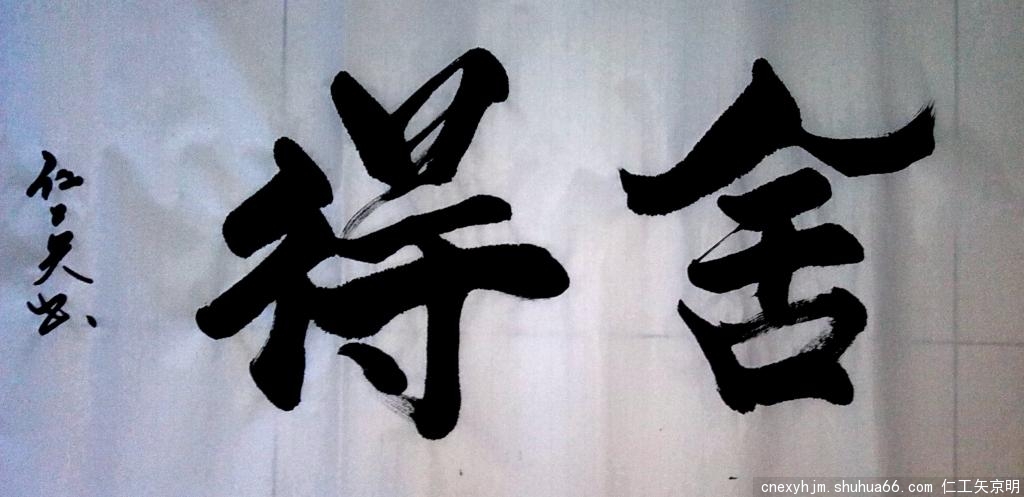 舍得
仁工矢书
cnexyhjm.shuhua66.com 仁工矢京明